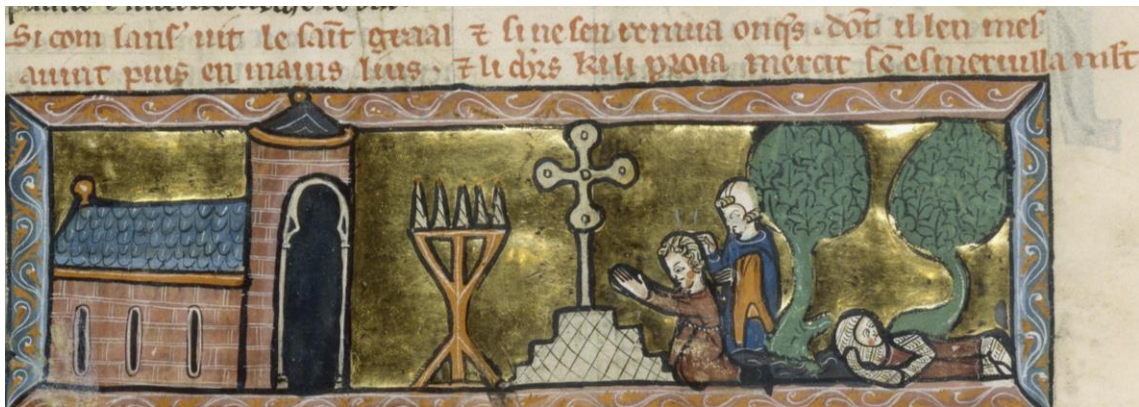 Si com lans' uit le saint graal ⁊ si ne sen remua onq̄s . dōt il len mes
auint puis en mains lius . ⁊ li ch̄rs ki li proia mercit sē esmeruilla